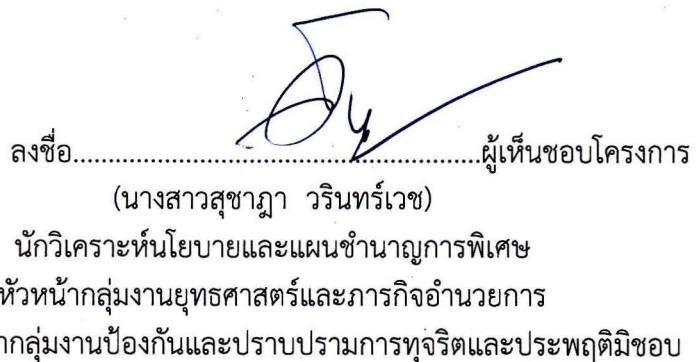 ลงชื่อ.....................................................ผู้เห็นชอบโครงการ
(นางสาวสุชาฎา วรินทร์เวช)
นักวิเคราะห์นโยบายและแผนชำนาญการพิเศษ
หัวหน้ากลุ่มงานยุทธศาสตร์และภารกิจอำนวยการ
กลุ่มงานป้องกันและปราบปรามการทุจริตและประพฤติมิชอบ